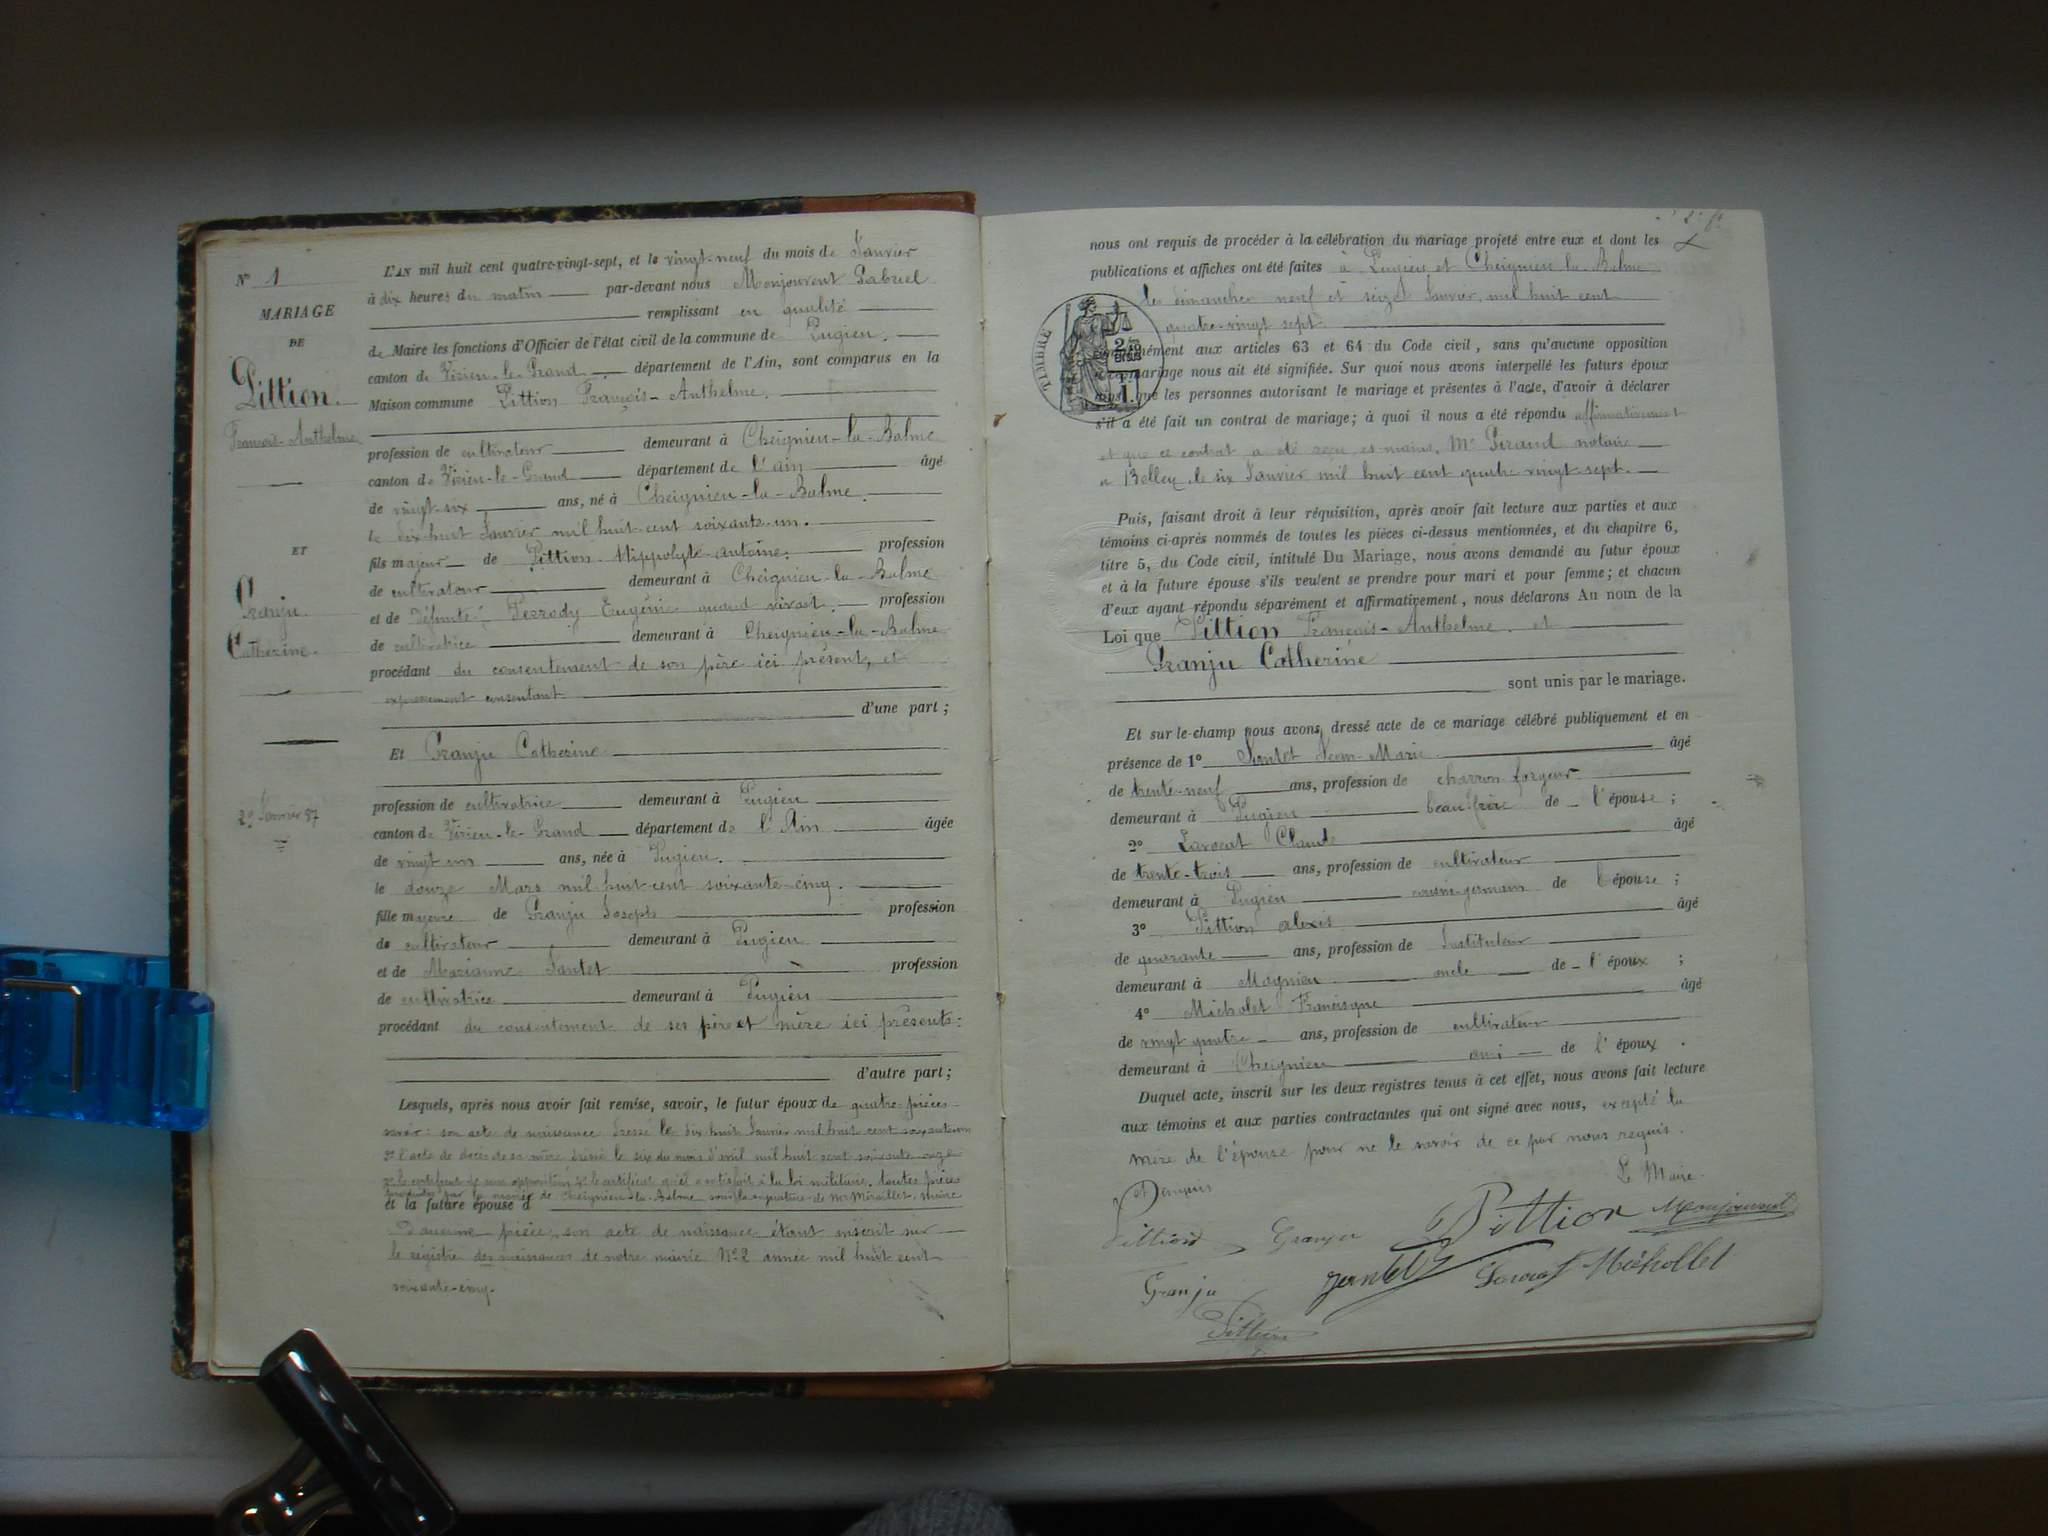 N° 1
MARIAGE
DE
Pittion.
François-Anthelme
ET
Granju
Catherine.
29 Janvier 87
L'AN mil huit cent quatre-vingt-sept, et le vingt-neuf du mois de Janvier
à dix heures du matin par-devant nous Monjouvent Gabriel
remplissant en qualité
de Maire les fonctions d'Officier de l'état civil de la commune de Pugieu.
canton de Virieu-le-Grand département de l'Ain, sont comparus en la
Maison commune Pittion François-Anthelme.
profession de cultivateur demeurant à Cheignieu-la-Balme
canton de Virieu-le-Grand département de l'ain âgé
de vingt-six ans, né à Cheignieu-la-Balme.
le dix-huit Janvier mil huit-cent soixante-un.
fils majeur de Pittion Hippolyte-antoine. profession
de cultivateur demeurant à Cheignieu-la-Balme
et de défunte Perrody Eugénie quand vivait. profession
de cultivatrice demeurant à Cheignieu-la-Balme
procédant du consentement de son père ici présent, et
expressément consentant
d'une part ;
Et Granju Catherine
profession de cultivatrice demeurant à Pugieu
canton de Virieu-le-Grand département de l'Ain âgée
de vingt un ans, née à Pugieu.
le douze Mars mil-huit-cent soixante-cinq.
fille majeure de Granju Joseph profession
de cultivateur demeurant à Pugieu
et de Marianne Jantet profession
de cultivatrice demeurant à Pugieu
procédant du consentement de ses père et mère ici présents:
d'autre part ;
Lesquels, après nous avoir fait remise, savoir, le futur époux de quatre pièces
savoir: son acte de naissance dressé le dix huit Janvier mil huit cent soixante un
2° l'acte de décès de sa mère dressé le six du mois d'avril mil huit cent soixante onze
3° le certificat de non opposition, 4° le certificat qu'il a satisfait à la loi militaire. toutes pièces
produites par la mairie de Cheignieu-la-Balme sous la signature de Mr Miraillet, maire
et la future épouse d
d'aucune pièce, son acte de naissance étant inscrit sur
le registre des naissances de notre mairie N°2 année mil huit cent
soixante-cinq.
nous ont requis de procéder à la célébration du mariage projeté entre eux et dont les
publications et affiches ont été faites à Pugieu et Cheignieu-la-Balme
les dimanches neuf et seize Janvier mil huit cent
quatre-vingt sept
TIMBRE
conformément aux articles 63 et 64 du Code civil, sans qu'aucune opposition
à ce mariage nous ait été signifiée. Sur quoi nous avons interpellé les futurs époux
ainsi que les personnes autorisant le mariage et présentes à l'acte, d'avoir à déclarer
s'il a été fait un contrat de mariage; à quoi il nous a été répondu affirmativement
et que ce contrat a été reçu es mains, Me Girand notaire
a Belley le six Janvier mil huit cent quatre vingt sept.
Puis, faisant droit à leur réquisition, après avoir fait lecture aux parties et aux
témoins ci-après nommés de toutes les pièces ci-dessus mentionnées, et du chapitre 6,
titre 5, du Code civil, intitulé Du Mariage, nous avons demandé au futur époux
et à la future épouse s'ils veulent se prendre pour mari et pour femme; et chacun
d'eux ayant répondu séparément et affirmativement, nous déclarons Au nom de la
Loi que Pittion François-Anthelme et
Granju Catherine
sont unis par le mariage.
Et sur-le-champ nous avons dressé acte de ce mariage célébré publiquement et en
présence de 1° Jantet Jean-Marie âgé
de trente-neuf ans, profession de charron forgeur
demeurant à Pugieu beau frère de l'épouse ;
2° Lavocat Claude âgé
de trente-trois ans, profession de cultivateur
demeurant à Pugieu cousin-germain de l'épouse ;
3° Pittion alexis âgé
de quarante ans, profession de Instituteur
demeurant à Magnieu oncle de l'époux ;
4° Micholet Francisque âgé
de vingt quatre ans, profession de cultivateur
demeurant à Cheignieu ami de l'époux.
Duquel acte, inscrit sur les deux registres tenus à cet effet, nous avons fait lecture
aux témoins et aux parties contractantes qui ont signé avec nous, excepté la
mère de l'épouse pour ne le savoir de ce par nous requis.
Le Maire.
Pittion Granju Pittion Monjouvent
Granju Jantet Lavocat Michollet
Pittion